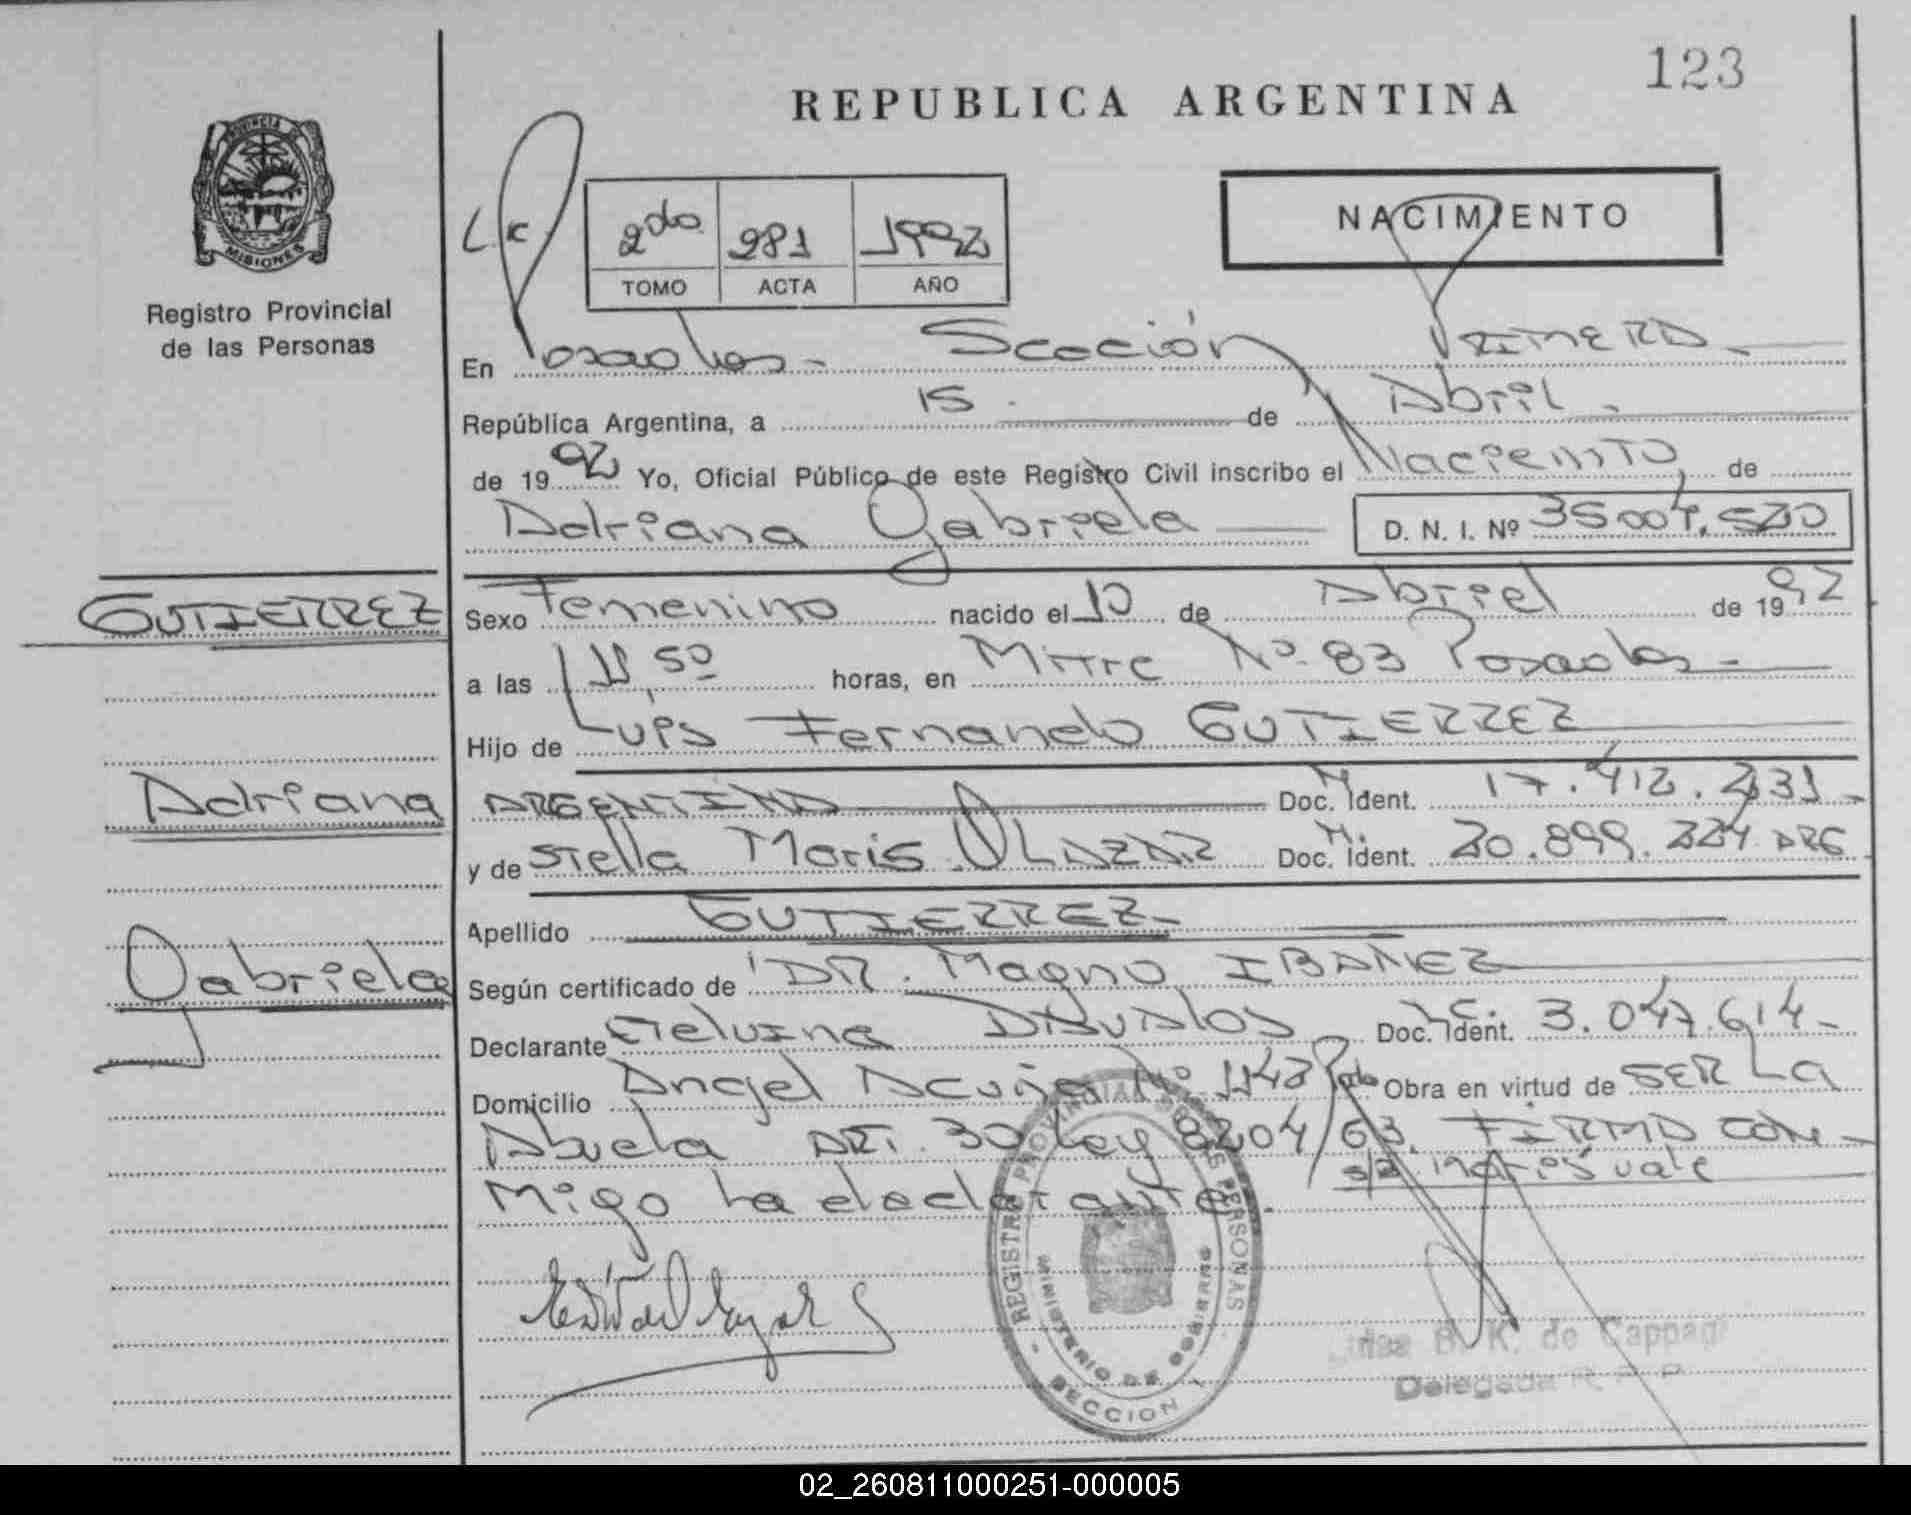 123
REPUBLICA ARGENTINA
PROVINCIA DE
MISIONES
Registro Provincial
de las Personas
NACIMIENTO
2do 281 1992
TOMO ACTA AÑO
En Posadas - Sección Primera
República Argentina, a 15 de Abril
de 1992 Yo, Oficial Público de este Registro Civil inscribo el Nacimiento, de
Adriana Gabriela D. N. I. Nº
GUTIERREZ
Adriana
Gabriela
Sexo Femenino nacido el 10 de Abril de 1992
a las 11,50 horas, en Mitre Nº 83 Posadas -
Hijo de Luis Fernando GUTIERREZ
ARGENTINA Doc. Ident. 17.412.231 -
y de Stella Maris OLAZAR Doc. Ident. 20.899.224 ARG
Apellido GUTIERREZ -
Según certificado de DR. Magno IBAÑEZ
Declarante Etelvina DAVALOS Doc. Ident. 3.047.614 -
Domicilio Angel Acuña Nº 1143 Obra en virtud de SER LA
Abuela ART. 30 Ley 8204/63. FIRMA CON-
Migo La declarante.
REGISTRO PROVINCIAL DE LAS PERSONAS
MINISTERIO DE GOBIERNO
SECCION
B. K. de
Delegada R. P. P.
02_260811000251-000005